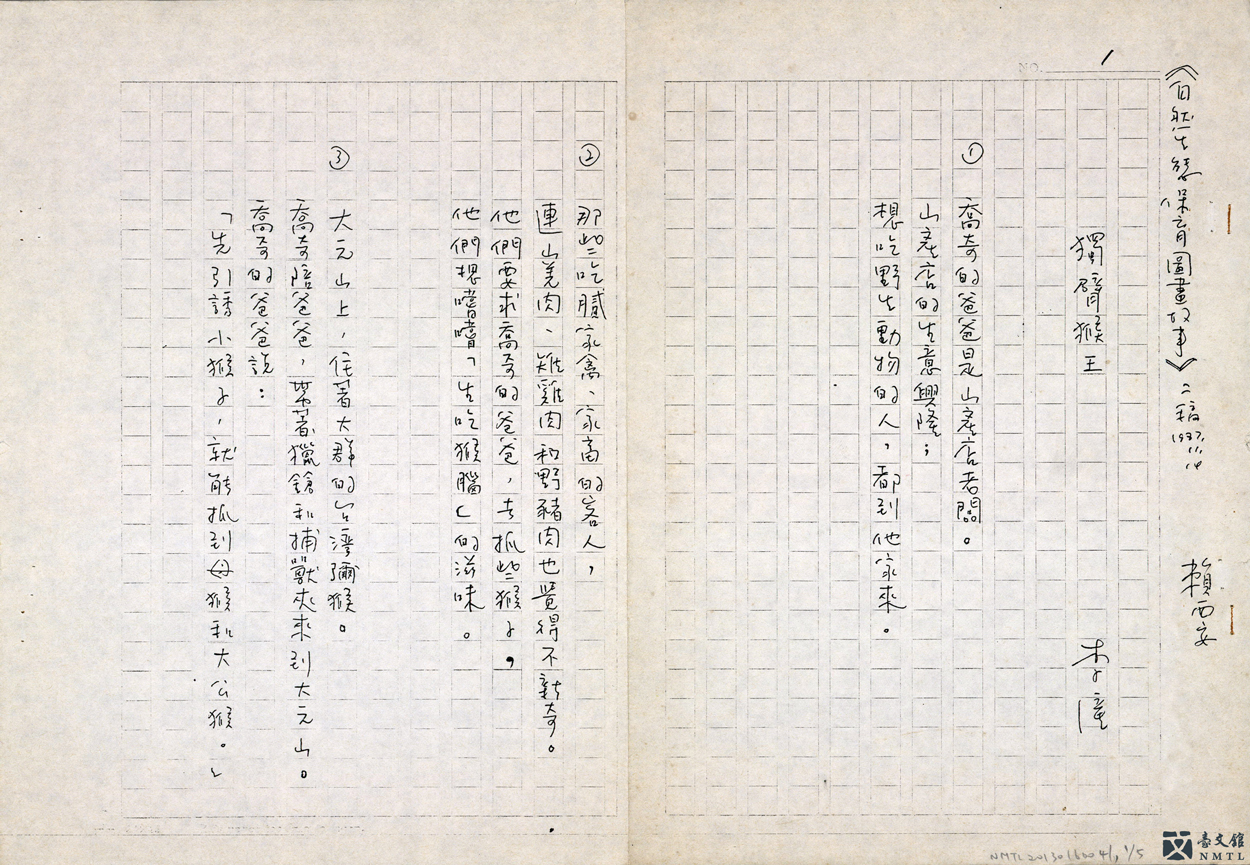 NO. 1
《自然生態保育圖畫故事》二稿 1987.11.14 賴西安
獨臂猴王 李潼
① 喬奇的爸爸是山產店老闆。
山產店的生意興隆；
想吃野生動物的人，都到他家來。
② 那些吃膩家禽、家畜的客人，
連山羌肉、雉雞肉和野豬肉也覺得不新奇。
他們要求喬奇的爸爸，去抓些猴子，
他們想嚐嚐「生吃猴腦」的滋味。
③ 大元山上，住著大群的台灣獼猴。
喬奇陪爸爸，帶著獵鎗和捕獸夾來到大元山。
喬奇的爸爸說：
「先引誘小猴子，就能抓到母猴和大公猴。」
NMTL20130160041, 1/5
臺文館
NMTL